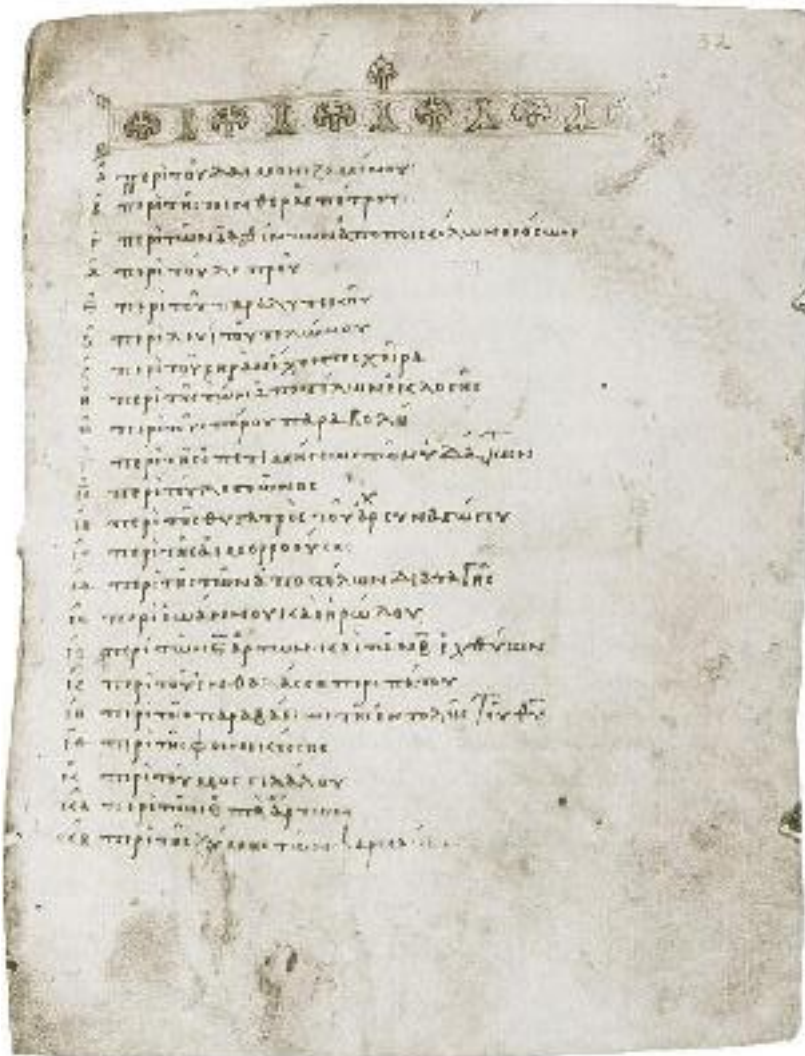 32
α περὶ τοῦ δαιμονιζομένου
β περὶ τῆς πενθερᾶς πέτρου
γ περὶ τῶν ἰαθέντων ἀπὸ ποικίλων νόσων
δ περὶ τοῦ λεπροῦ
ε περὶ τοῦ παραλυτικοῦ
ϛ περὶ λευὶ τοῦ τελώνου
ζ περὶ τοῦ ξηρὰν ἔχοντος χεῖρα
η περὶ τῆς τῶν ἀποστόλων ἐκλογῆς
θ περὶ τοῦ σπόρου παραβολή
ι περὶ τῆς ἐπιτιμήσεως τῶν ὑδάτων
ια περὶ τοῦ λεγεῶνος
ιβ περὶ τῆς θυγατρὸς τοῦ ἀρχισυναγώγου
ιγ περὶ τῆς αἱμορροούσης
ιδ περὶ τῆς τῶν ἀποστόλων διαταγῆς
ιε περὶ ἰωάννου καὶ ἡρώδου
ιϛ περὶ τῶν ε ἄρτων καὶ τῶν β ἰχθύων
ιζ περὶ τοῦ ἐν θαλάσσῃ περιπάτου
ιη περὶ τῆς παραβάσεως τῆς ἐντολῆς τοῦ θυ
ιθ περὶ τῆς φοινικίσσης
κ περὶ τοῦ μογιλάλου
κα περὶ τῶν ζ ἄρτων
κβ περὶ τῆς ζύμης τῶν φαρισαίων